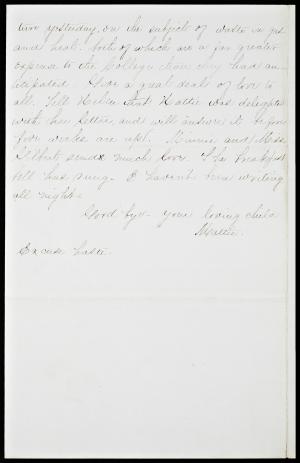 ture yesterday, on the subject of waste in gas
and heat: both of which are a far greater
expense to the College than they had an-
ticipated. Give a great deal of love to
all. Tell Helen that Hattie was delighted
with her letter, and will answer it before
four weeks are up. Minnie and Miss
Gilbert, sends much love. The breakfast
bell has rung. I haven't been writing
all night.
Good bye - your loving child
Mattie.
Excuse haste.